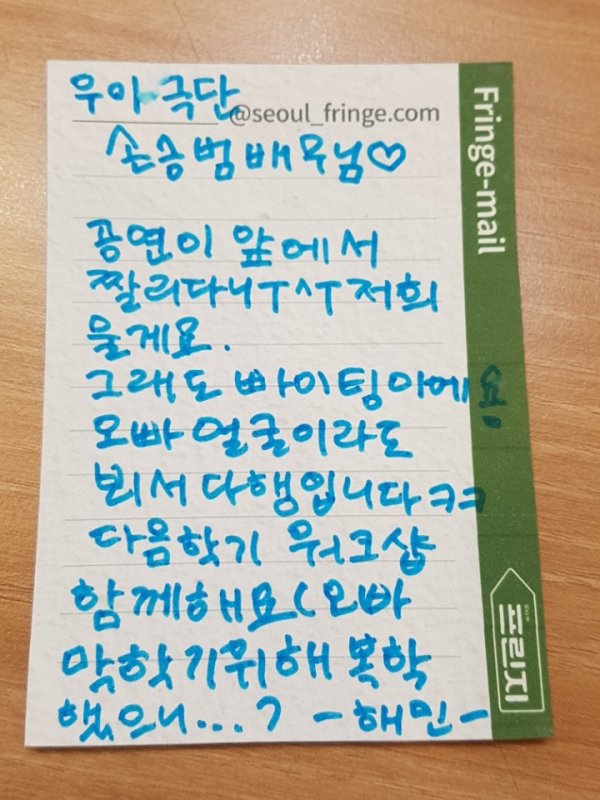 우아 극단
@seoul_fringe.com
손승범 배우님♡
공연이 앞에서
짤리다니ㅜㅅㅜ 저희
울게요.
그래도 빠이팅이에요!
오빠 얼굴이라도
봬서 다행입니다ㅋㅋ
다음학기 워크샵
함께해요(오빠
막학기위해 복학
했으니...?  - 해민 -
Fringe-mail
프린지